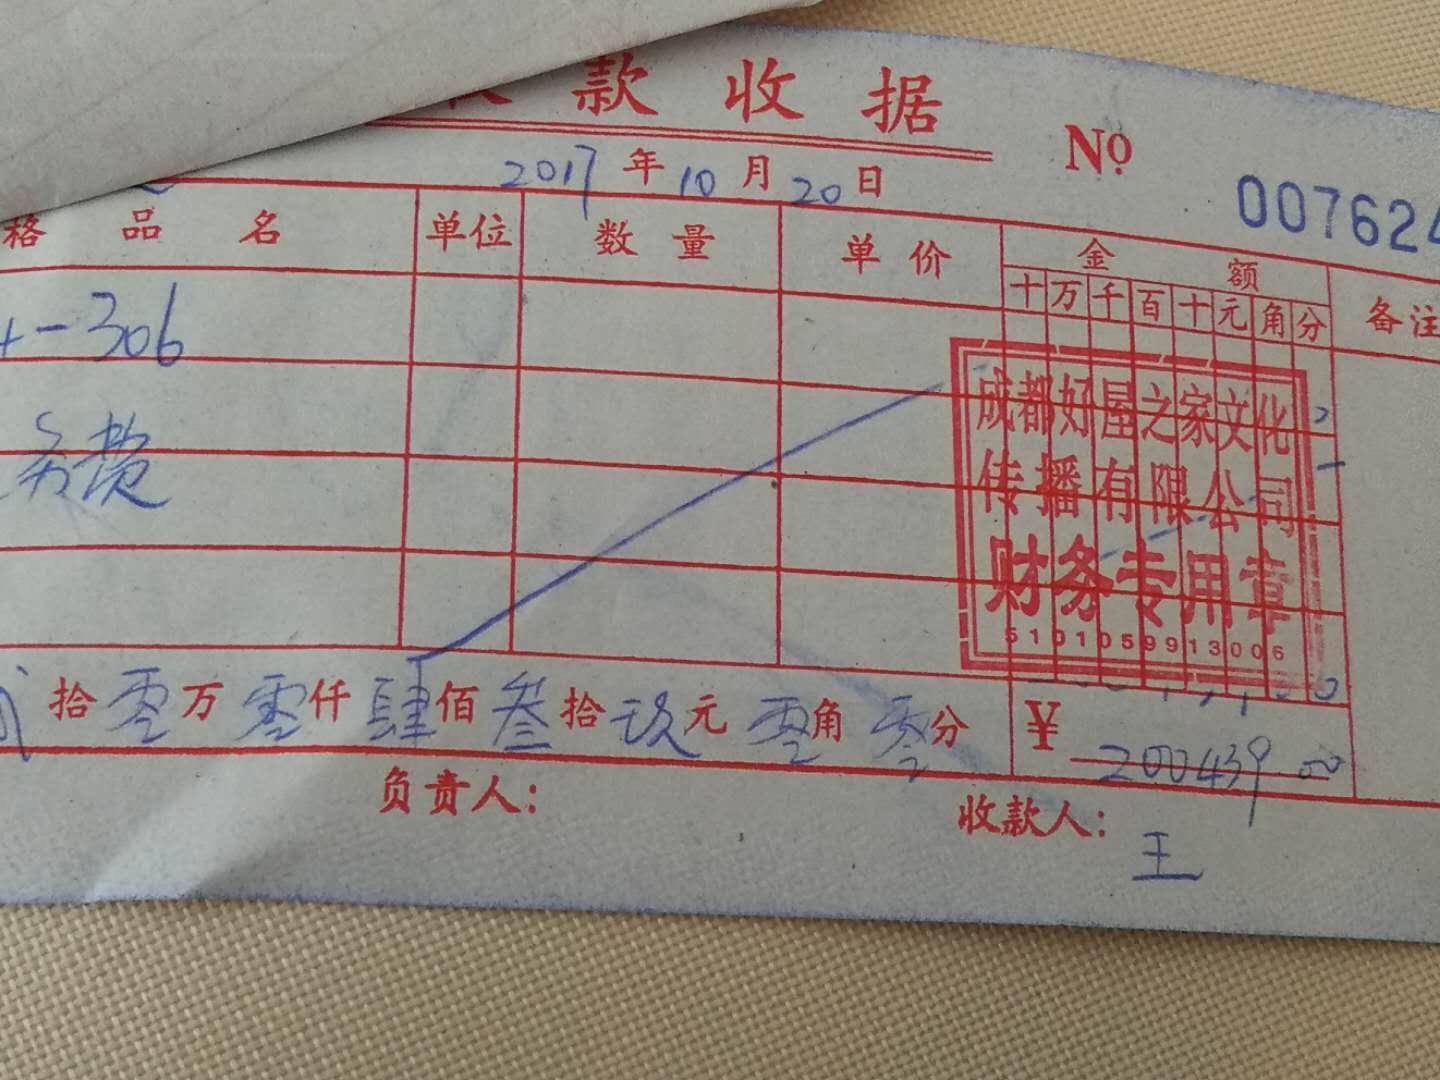 款收据
No 007624
2017年10月20日
格品名 单位 数量 单价 金额 备注
十万千百十元角分
-306
务费
成都好屋之家文化
传播有限公司
财务专用章
5101059913006
拾零万零仟肆佰叁拾玖元零角零分 ¥200439.00
负责人: 收款人: 王